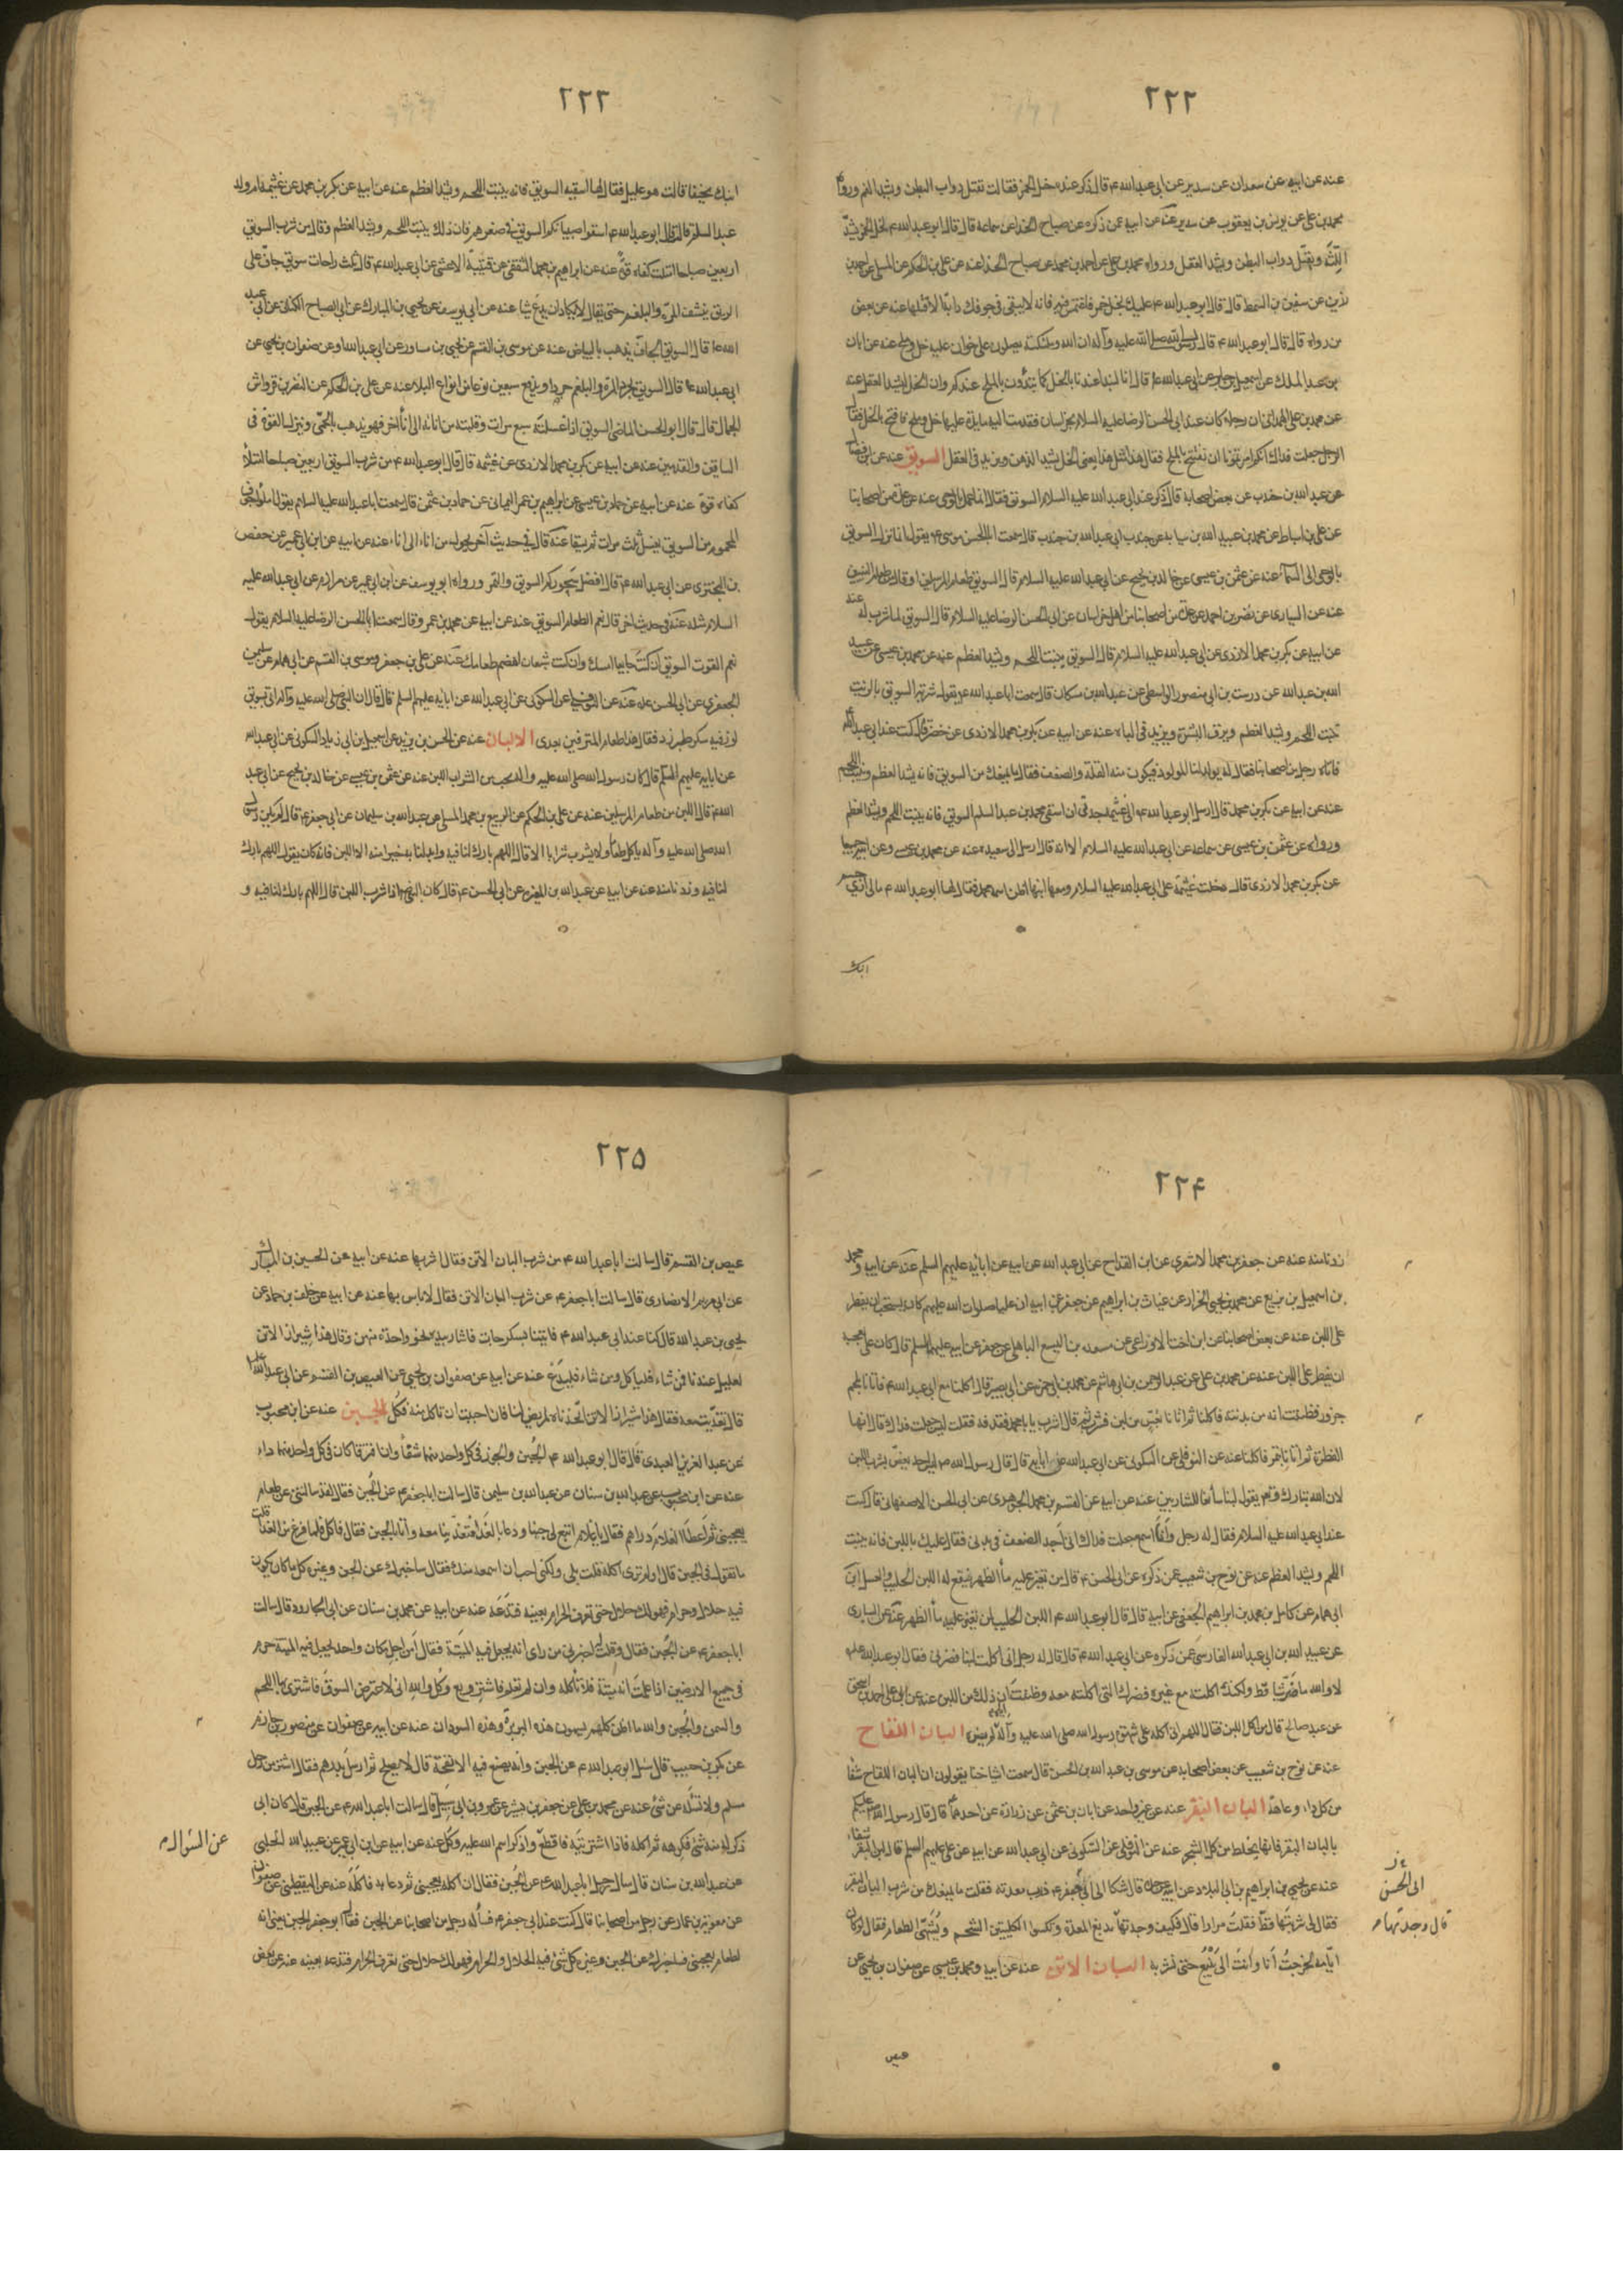 ٢٢٢
عنه عن ابيه عن سعدان عن سدير عن ابى عبد الله ع قال ذكر عنده خل الخمر فقالت تقتل دواب البطن ويشد الفم ورواه
محمد بن على عن يونس بن يعقوب عن سدير عنه عن ابيه عمن ذكره عن صباح الحذاء عن سماعة قال قال ابو عبد الله ع لخل الخمر يشد
اللثة ويقتل دواب البطن ويشد العقل ورواه محمد بن على عن احمد بن محمد عن صباح الحذاء عنه عن على بن الحكم عن المسلى عن احمد بن
رزين عن سفين بن السمط قال قال ابو عبد الله ع عليك بخل خمر فاغتمس فيه فانه لا يبقى في جوفك دابة الا قتلها عنه عن بعض
من رواه قال قال ابو عبد الله ع قال رسول الله صلى الله عليه وآله ان الله وملئكته يصلون على خوان عليه خل وملح عنه عن ابان
بن عبد الملك عن اسمعيل بن جابر عن ابى عبد الله ع قال انا لنبدأ عندنا بالخل كما تبدؤن بالملح عندكم وان الخل ليشد العقل عنه
عن محمد بن على الهمدانى ان رجلا كان عند ابى الحسن الرضا عليه السلام بخراسان فقدمت اليه مايدة عليها خل وملح فافتتح بالخل فقال
الرجل جعلت فداك انكم امرتمونا ان نفتتح بالملح فقال هذا مثل هذا يعنى الخل يشد الذهن ويزيد فى العقل السويق عنه عن ابن فضال
عن عبد الله بن جندب عن بعض اصحابه قال ذكر عند ابى عبد الله عليه السلام السويق فقال انما عمل بالوحى عنه عن عدة من اصحابنا
عن على بن اسباط عن محمد بن عبيد الله بن سيابه عن جندب ابى عبد الله بن جندب قال سمعت ابا الحسن موسى ع يقول انما نزل السويق
بالوحى الى السماء عنه عن عثمن بن عيسى عن خالد بن نجيح عن ابى عبد الله عليه السلام قال السويق طعام المرسلين او قال طعام النبيين
عنه عن السيارى عن نضر بن احمد عن عدة من اصحابنا من اهل خراسان عن ابى الحسن الرضا عليه السلام قال السويق لما شرب له عنه
عن ابيه عن بكر بن محمد الازدى عن ابى عبد الله عليه السلام قال السويق ينبت اللحم ويشد العظم عنه عن محمد بن عيسى عن عبيد
الله بن عبد الله عن درست بن ابى منصور الواسطى عن عبد الله بن مسكان قال سمعت ابا عبد الله ع يقول شربة السويق بالزيت
تنبت اللحم ويشد العظم ويرق البشرة ويزيد فى الباه عنه عن ابيه عن بكر بن محمد الازدى عن خضر قال كنت عند ابى عبد الله
فاتاه رجل من اصحابنا فقال له يولد لنا المولود فيكون منه القلة والضعف فقال ما يمنعك من السويق فانه يشد العظم وينبت اللحم
عنه عن ابيه عن بكر بن محمد قال ارسل ابو عبد الله ع الى عثيمه جدتى ان اسقى محمد بن عبد السلم السويق فانه ينبت اللحم ويشد العظم
ورواه عن عثمن بن عيسى عن سماعه عن ابى عبد الله عليه السلام الا انه قال ارسل الى سعيده عنه عن محمد بن عيسى وعن ابيه جميعا
عن بكر بن محمد الازدى قال دخلت عثيمة على ابى عبد الله عليه السلام ومعها ابنها اظن اسمه محمد فقال لها ابو عبد الله ع مالى ارى جسم
ابنك
٢٢٣
ابنك نحيفا قالت هو عليل فقال لها اسقيه السويق فانه ينبت اللحم ويشد العظم عنه عن ابيه عن بكر بن محمد عن عثيمة ام ولد
عبد السلم قالت قال ابو عبد الله ع اسقوا صبيانكم السويق فى صغرهم فان ذلك ينبت اللحم ويشد العظم وقال من شرب السويق
اربعين صباحا امتلت كتفاه قوة عنه عن ابراهيم بن محمد الثقفى عن قتيبة الاعشى عن ابى عبد الله ع قال ثلث راحات سويق جاف على
الريق ينشف المرة والبلغم حتى يقال لا يكاد ان يدع شيا عنه عن ابى يوسف عن يحيى بن المبارك عن ابى الصباح الكنانى عن ابى عبد
الله ع قال السويق الجاف يذهب بالبياض عنه عن موسى بن القسم عن يحيى بن مساور عن ابى عبد الله ع وعن صفوان بن يحيى عن
ابى عبد الله ع قال السويق يجرد المرة والبلغم جردا ويدفع سبعين نوعا من انواع البلاء عنه عن على بن الحكم عن النضر بن قرواش
الجمال قال قال ابو الحسن الماضى السويق اذا غسلته سبع مرات وقلبته من انائه الى اناء آخر فهو يذهب بالحمى وينزل القوة فى
الساقين والقدمين عنه عن ابيه عن بكر بن محمد الازدى عن عثيمه قال قال ابو عبد الله ع من شرب السويق اربعين صباحا امتلأ
كتفاه قوة عنه عن ابيه عن حماد بن عيسى عن ابراهيم بن عمر اليمانى عن حماد بن عثمن قال سمعت ابا عبد الله عليه السلام يقول املؤا جوف
المحموم من السويق يغسل ثلث مرات ثم يسقا عنه قال فى حديث آخر يحول من اناء الى اناء عنه عن ابيه عن ابن ابى عمير عن حفص
بن البخترى عن ابى عبد الله ع قال افضل سحوركم السويق والتمر ورواه ابو يوسف عن ابن ابى عمير عن مرازم عن ابى عبد الله عليه
السلام مثله عنه فى حديث اخر قال نعم الطعام السويق عنه عن ابيه عن محمد بن عمرو قال سمعت ابا الحسن الرضا عليه السلام يقول
نعم القوت السويق ان كنت جايعا امسك وان كنت شبعان هضم طعامك عنه عن على بن جعفر وموسى بن القسم عن ابى همام عن سليمن
الجعفرى عن ابى الحسن ع عنه عن النوفلى عن السكونى عن ابى عبد الله عن ابائه عليهم السلم قال قال ان النبى صلى الله عليه وآله اتى بسويق
لوز فيه سكر طبرزد فقال هذا طعام المترفين بعدى الالبان عنه عن الحسن بن يزيد عن اسمعيل بن ابى زياد السكونى عن ابى عبد الله
عن ابايه عليهم السلم قال كان رسول الله صلى الله عليه وآله يحب من الشراب اللبن عنه عن عثمن بن عيسى عن خالد بن نجيح عن ابى عبد
الله ع قال اللبن من طعام المرسلين عنه عن على بن الحكم عن الربيع بن محمد المسلى عن عبد الله بن سليمان عن ابى جعفر ع قال لم يكن رسول
الله صلى الله عليه وآله يأكل طعاما ولا يشرب شرابا الا قال اللهم بارك لنا فيه وابدلنا به خيرا منه الا اللبن فانه كان يقول اللهم بارك
لنا فيه وزدنا منه عنه عن ابيه عن عبد الله بن المغيره عن ابى الحسن ع قال كان النبى ص اذا شرب اللبن قال اللهم بارك لنا فيه و
٢٢۴
زدنا منه عنه عن جعفر بن محمد الاشعرى عن ابن القداح عن ابى عبد الله عن ابيه عن ابائه عليهم السلم عنه عن ابيه ومحمد
بن اسمعيل بن بزيع عن محمد بن يحيى الخزاز عن غياث بن ابراهيم عن جعفر عن ابيه ان عليا صلوات الله عليهم كان يستحب ان يفطر
على اللبن عنه عن بعض اصحابنا عن ابن اخت الاوزاعى عن مسعده بن اليسع الباهلى عن جعفر عن ابيه عليهما السلم قال كان على ع يعجبه
ان يفطر على اللبن عنه عن محمد بن على عن عبد الرحمن بن ابى هاشم عن محمد بن ابى حمزه عن ابى بصير قال اكلنا مع ابى عبد الله ع فاتانا بلحم
جزور فظننت انه من بدنته فاكلنا ثم اتانا بعس من لبن فشرب ثم قال اشرب يا با محمد فذقته فقلت لبن جعلت فداك قال انها
الفطرة ثم اتانا بتمر فاكلنا عنه عن النوفلى عن السكونى عن ابى عبد الله عن ابايه قال قال رسول الله ص ليس احد يغص بشرب اللبن
لان الله تبارك وتع يقول لبنا سائغا للشاربين عنه عن ابيه عن القسم بن محمد الجوهرى عن ابى الحسن الاصفهانى قال كنت
عند ابى عبد الله عليه السلام فقال له رجل وانا اسمع جعلت فداك انى اجد الضعف فى بدنى فقال عليك باللبن فانه ينبت
اللحم ويشد العظم عنه عن نوح بن شعيب عمن ذكره عن ابى الحسن ع قال من تغير عليه ماء الظهر ينفع له اللبن الحليب والعسل
ابى همام عن كامل بن محمد بن ابراهيم الجعفى عن ابيه قال قال ابو عبد الله ع اللبن الحليب لمن تغير عليه ماء الظهر عنه عن السيارى
عن عبيد الله بن ابى عبد الله الفارسى عمن ذكره عن ابى عبد الله ع قال قال له رجل انى اكلت لبنا فضرنى فقال ابو عبد الله ع
لا والله ما ضر شيا قط ولكنك اكلته مع غيره فضرك الذى اكلته معه وظننت ان ذلك من اللبن عنه عن ابى على احمد بن اسحق
عن عبد صالح قال من اكل اللبن فقال اللهم انى اكله على شهوة رسول الله صلى الله عليه وآله لم يضره البان اللقاح
عنه عن نوح بن شعيب عن بعض اصحابه عن موسى بن عبد الله بن الحسن قال سمعت اشياخنا يقولون ان البان اللقاح شفا
من كل داء وعاهة البان البقر عنه عن غير واحد عن ابان بن عثمن عن زرارة عن احدهما قال قال رسول الله عليكم
بالبان البقر فانها تخلط من كل الشجر عنه عن النوفلى عن السكونى عن ابى عبد الله عن ابيه عن على عليهم السلم قال لبن البقر شفاء
عنه عن يحيى بن ابراهيم بن ابى البلاد عن ابيه عن جده قال شكا الى ابى جعفر ع ذرب معدته فقلت ما يمنعك من شرب البان البقر
فقال لى شربتها قط فقلت مرارا قال فكيف وجدتها تدبغ المعدة وتكسوا الكليتين الشحم ويشهى الطعام فقال لو كان
ايامه لخرجت انا وانت الى ينبع حتى نشربه البان الاتن عنه عن ابيه ومحمد بن عيسى عن صفوان بن يحيى عن
عيص
الى الحسن
قال وجدتها م
٢٢۵
عيص بن القسم قال سالت ابا عبد الله ع من شرب البان الاتن فقال اشربها عنه عن ابيه عن الحسين بن المبارك
عن ابى مريم الانصارى قال سالت ابا جعفر ع عن شرب البان الاتن فقال لا باس بها عنه عن ابيه عن خلف بن حماد عن
يحيى بن عبد الله قال كنا عند ابى عبد الله ع فاتينا بسكرجات فاشار بيده نحو واحدة منهن وقال هذا شيراز الاتن
لعليل عندنا فمن شاء فلياكل ومن شاء فليدع عنه عن ابيه عن صفوان بن يحيى عن العيص بن القسم عن ابى عبد الله ع
قال تغديت معه فقال هذا شيراز الاتن اتخذناه لمريض لنا فان احببت ان تاكل منه فكل الجبن عنه عن ابن محبوب
عن عبد العزيز العبدى قال قال ابو عبد الله ع الجبن والجوز فى كل واحد منهما شفاء وان افترقا كان فى كل واحد منهما داء
عنه عن ابن محبوب عن عبد الله بن سنان عن عبد الله بن سليمن قال سالت ابا جعفر ع عن الجبن فقال لقد سالتنى عن طعام
يعجبنى ثم اعطا الغلام دراهم فقال يا غلام ابتع لى جبنا ودعا بالغدا فتغدينا معه وأتا بالجبن فقال فاكل فلما فرغ من الغداء قلت
ما تقول فى الجبن قال او لم ترنى اكلته قلت بلى ولكنى احب ان اسمعه منك فقال ساخبرك عن الجبن وغيره كل ما كان يكون
فيه حلال وحرام فهو لك حلال حتى تعرف الحرام بعينه فتدعه عنه عن ابيه عن محمد بن سنان عن ابى الجارود قال سالت
ابا جعفر ع عن الجبن فقال وقلت له اخبرنى من راى انه يجعل فيه الميتة فقال أمن اجل مكان واحد يجعل فيه الميتة حرم
فى جميع الارضين اذا علمت انه ميتة فلا تأكله وان لم تعلم فاشتر وبع وكل والله انى لاعترض السوق فاشترى بها اللحم
والسمن والجبن والله ما اظن كلهم يسمون هذه البربر وهذه السودان عنه عن ابيه عن صفوان عن منصور بن حازم
عن بكر بن حبيب قال سئل ابو عبد الله ع عن الجبن وانه يصنع فيه الانفحة قال لا يصلح ثم ارسل بدرهم فقال اشتر من رجل
مسلم ولا تسئله عن شئ عنه عن محمد بن على عن جعفر بن بشير عن عمرو بن ابى سبيل قال سالت ابا عبد الله ع عن الجبن قال كان ابى
ذكر له منه شئ فكرهه ثم اكله فاذا اشتريته فاقطع واذكر اسم الله عليه وكل عنه عن ابيه عن ابن ابى عمير عن عبيد الله الحلبى
عن عبد الله بن سنان قال سال رجل ابا عبد الله ع عن الجبن فقال ان اكله يعجبنى ثم دعا به فاكله عنه عن اليقطينى عن صفوان
عن معويه بن عمار عن رجل من اصحابنا قال كنت عند ابى جعفر ع فسأله رجل من اصحابنا عن الجبن فقال ابو جعفر الجبن يعنى انه
لطعام يعجبنى فساخبرك عن الجبن وغيره كل شئ فيه الحلال والحرام فهو لك حلال حتى تعرف الحرام فتدعه بعينه عنه عن بعض
عن السؤال م